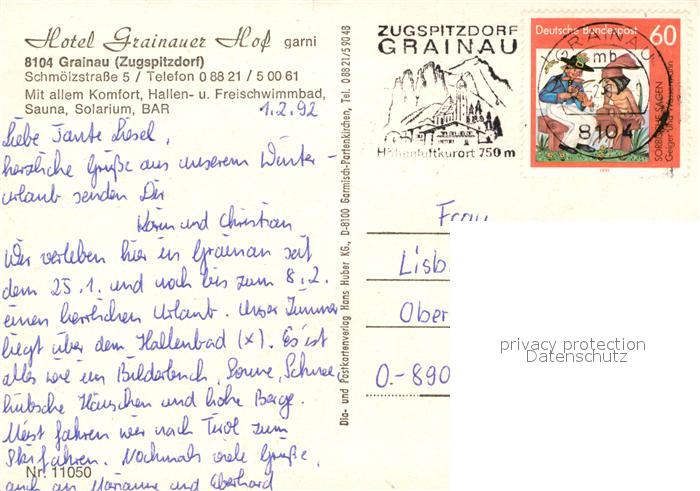 Hotel Grainauer Hof garni
8104 Grainau (Zugspitzdorf)
Schmölzstraße 5 / Telefon 0 88 21 / 5 00 61
Mit allem Komfort, Hallen- u. Freischwimmbad,
Sauna, Solarium, BAR
1.2.92
Liebe Tante Liesel,
herzliche Grüße aus unserem Winter-
urlaub senden Dir
Karin und Christian
Wir verleben hier in Grainau seit
dem 25.1. und noch bis zum 8.2.
einen herrlichen Urlaub. Unser Zimmer
liegt über dem Hallenbad (x). Es ist
alles wie im Bilderbuch, Sonne, Schnee,
hübsche Häuschen und hohe Berge.
Meist fahren wir nach Tirol zum
Skifahren. Nochmals viele Grüße,
auch an Marianne und Eberhard
Nr. 11050
Dia- und Postkartenverlag Hans Huber KG, D-8100 Garmisch-Partenkirchen, Tel. 08821/59048
ZUGSPITZDORF
GRAINAU
Höhenluftkurort 750 m
Deutsche Bundespost 60
SORBISCHE SAGEN
Geiger und Wassermann
1991
GRAINAU
mb
8104
Frau
Lisb
Ober
O.-890
privacy protection
Datenschutz